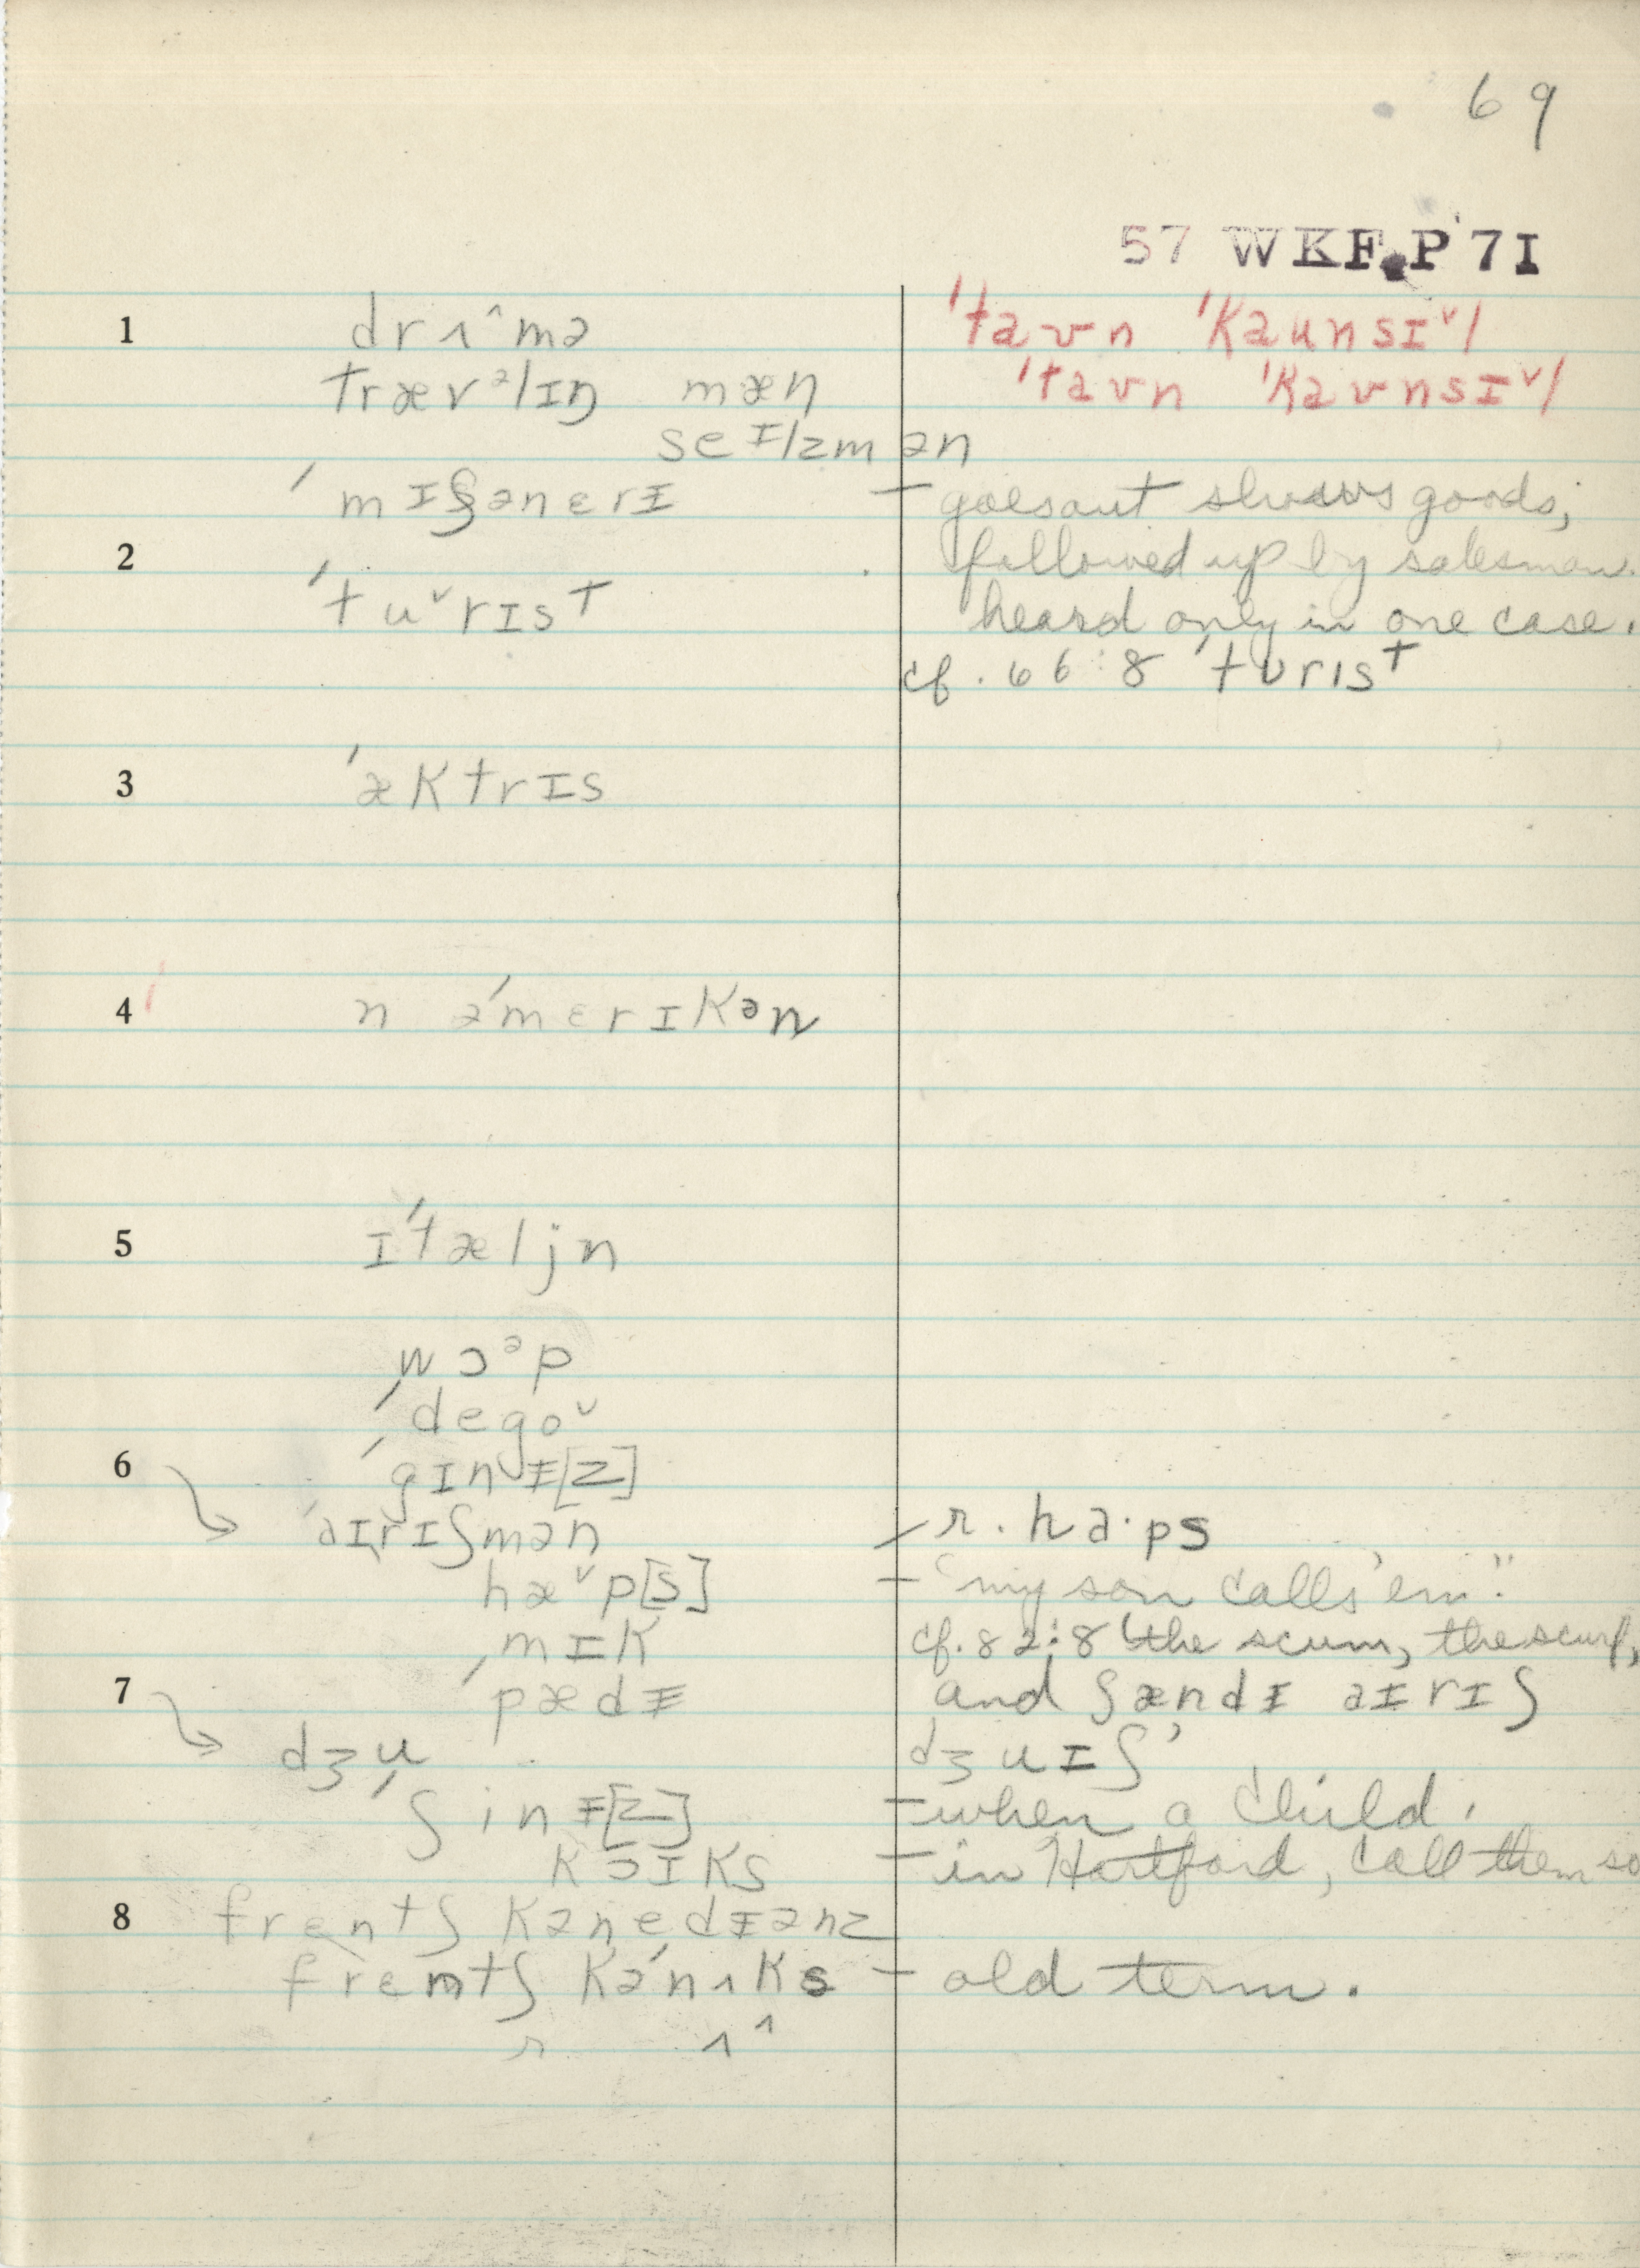 69
57 WKF.P 71
1 drʌ^mə
ˈtaʊn ˈkaunsɪˇl
trævᵊlɪŋ mæn
ˈtaʊn ˈkaʊnsɪˇl
seɪlzmən
ˈmɪʃənɛrɪ – goes out shows goods;
2 followed up by salesman.
ˈtuˇrɪst heard only in one case.
cf. 66:8 ˈtʊrɪst
3 ˈæktrɪs
4 n əˈmɛrɪkən
5 ɪˈtæljn
wɔᵊp
ˈdegoˇ
6 ˈgɪnɪ[z]
ˈaɪrɪʃmən – r. ha·ps
hæˇp[s] – "my son calls 'em".
mɪk cf. 82:8 the scum, the scurf,
7 ˈpædɪ and ʃændɪ aɪrɪʃ
dʒu dʒuɪʃ
ˈʃinɪ[z] – when a child.
kɔɪks – in Hartford, call them so
8 frɛntʃ kənedɪənz
frɛntʃ kəˈnʌks – old term.
r ʌ^